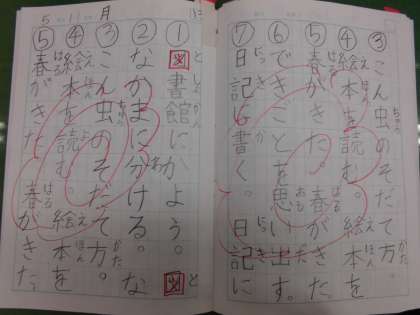 ③こん虫のそだて方。
④絵本を読む。絵本を
⑤春がきた。春がきた
⑥できごとを思い出す。
⑦日記に書く。日記に
①図書館にかよう。図
②なかまに分ける。な
③こん虫のそだて方。
④絵本を読む。絵本を
⑤春がきた。春がきた。